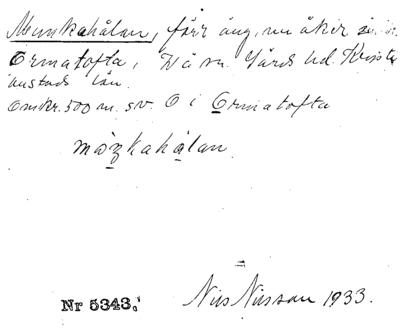 Munkahålan, förr äng, nu åker
Ormatofta, Vä sn. Gärds hd. Kristi-
anstads län.
Omkr. 500 m. sv. O i Ormatofta
Nr 5343.
Nils Nilsson 1933.